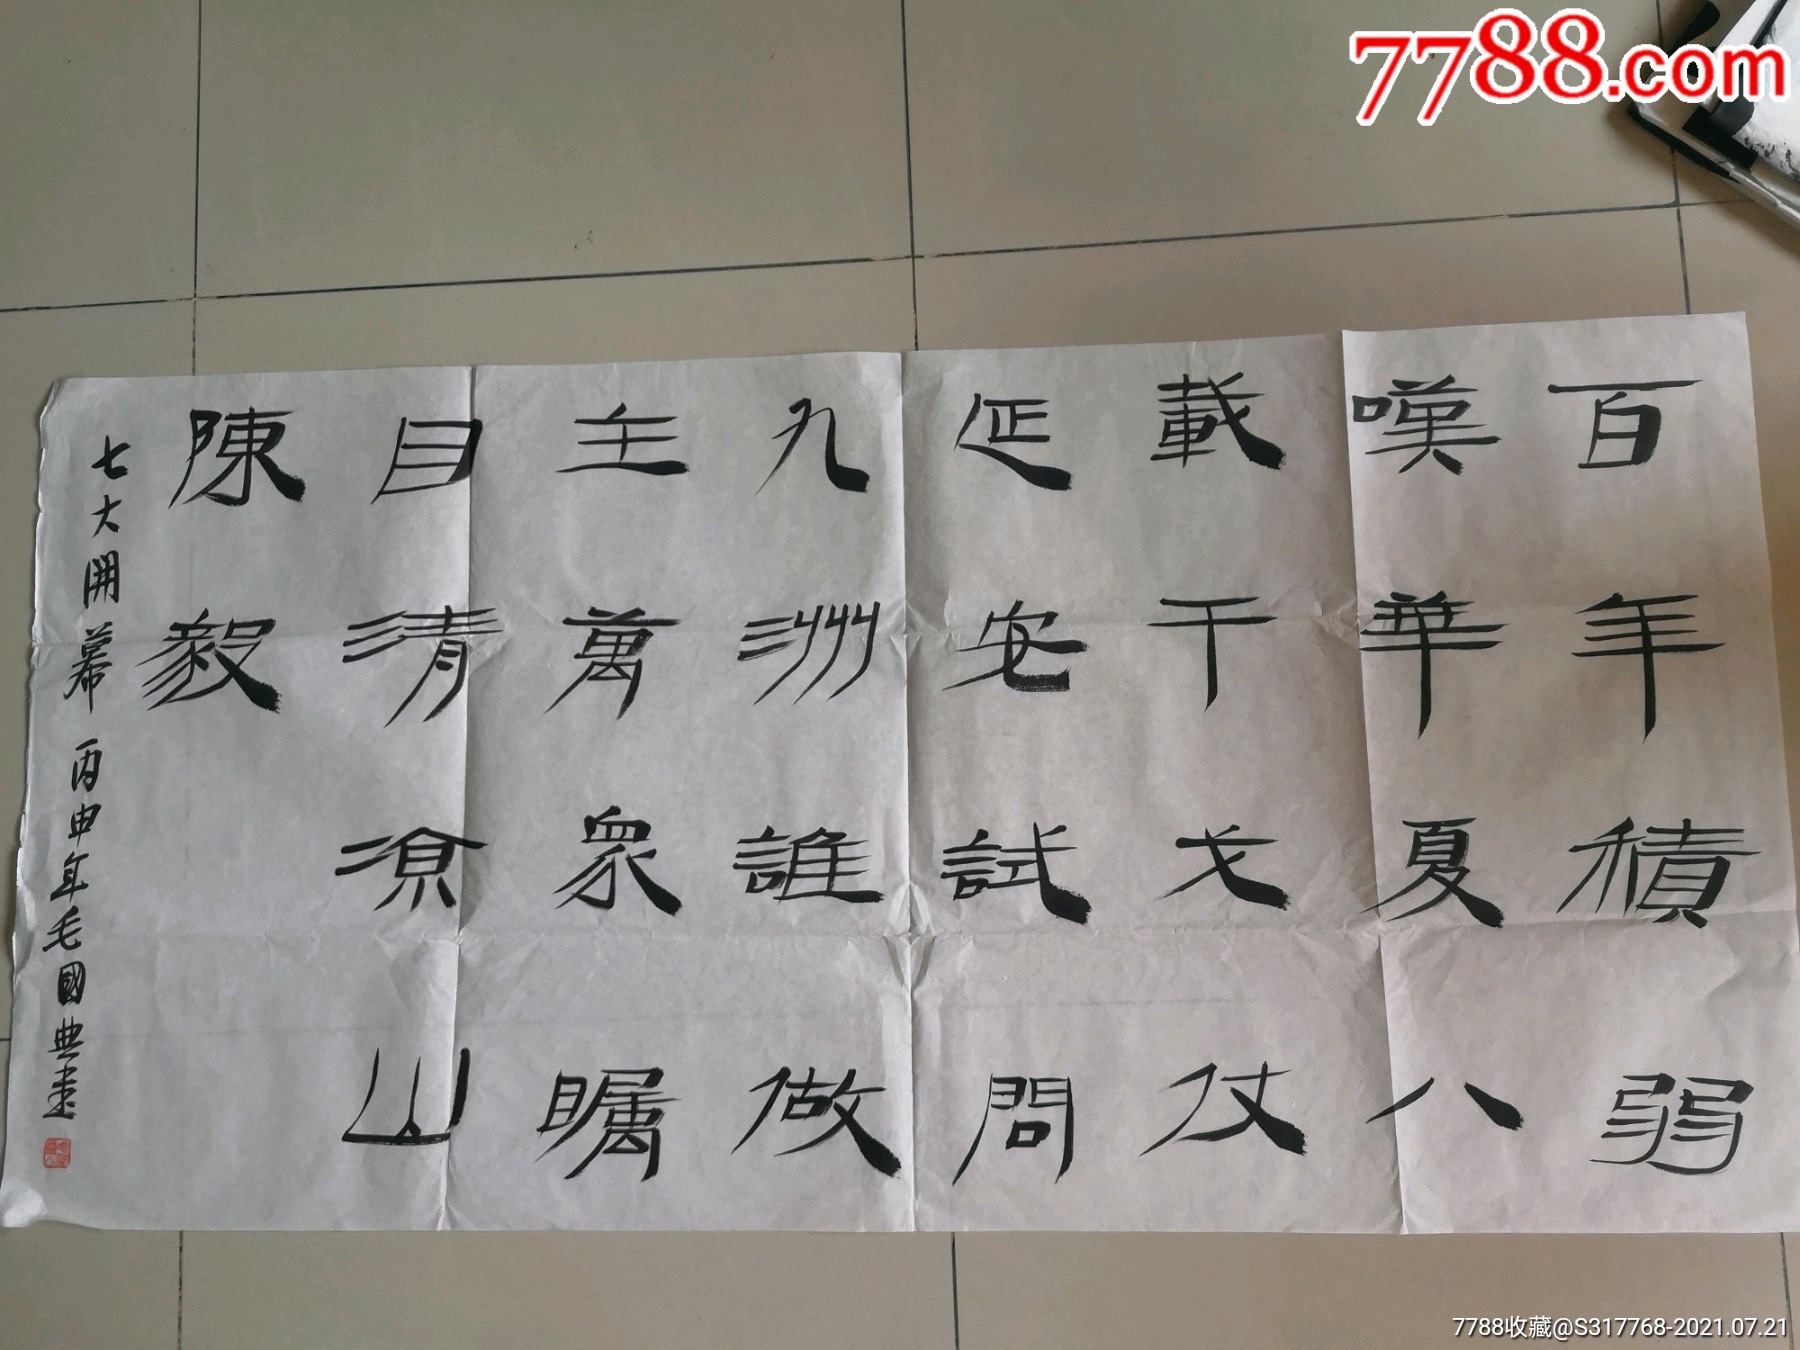 7788.com
百年積弱
嘆華夏八
載干戈仗
延安試問
九洲誰做
主萬眾矚
目清凉山
陳毅
七大開幕 丙申年毛國典書
7788收藏@S317768-2021.07.21